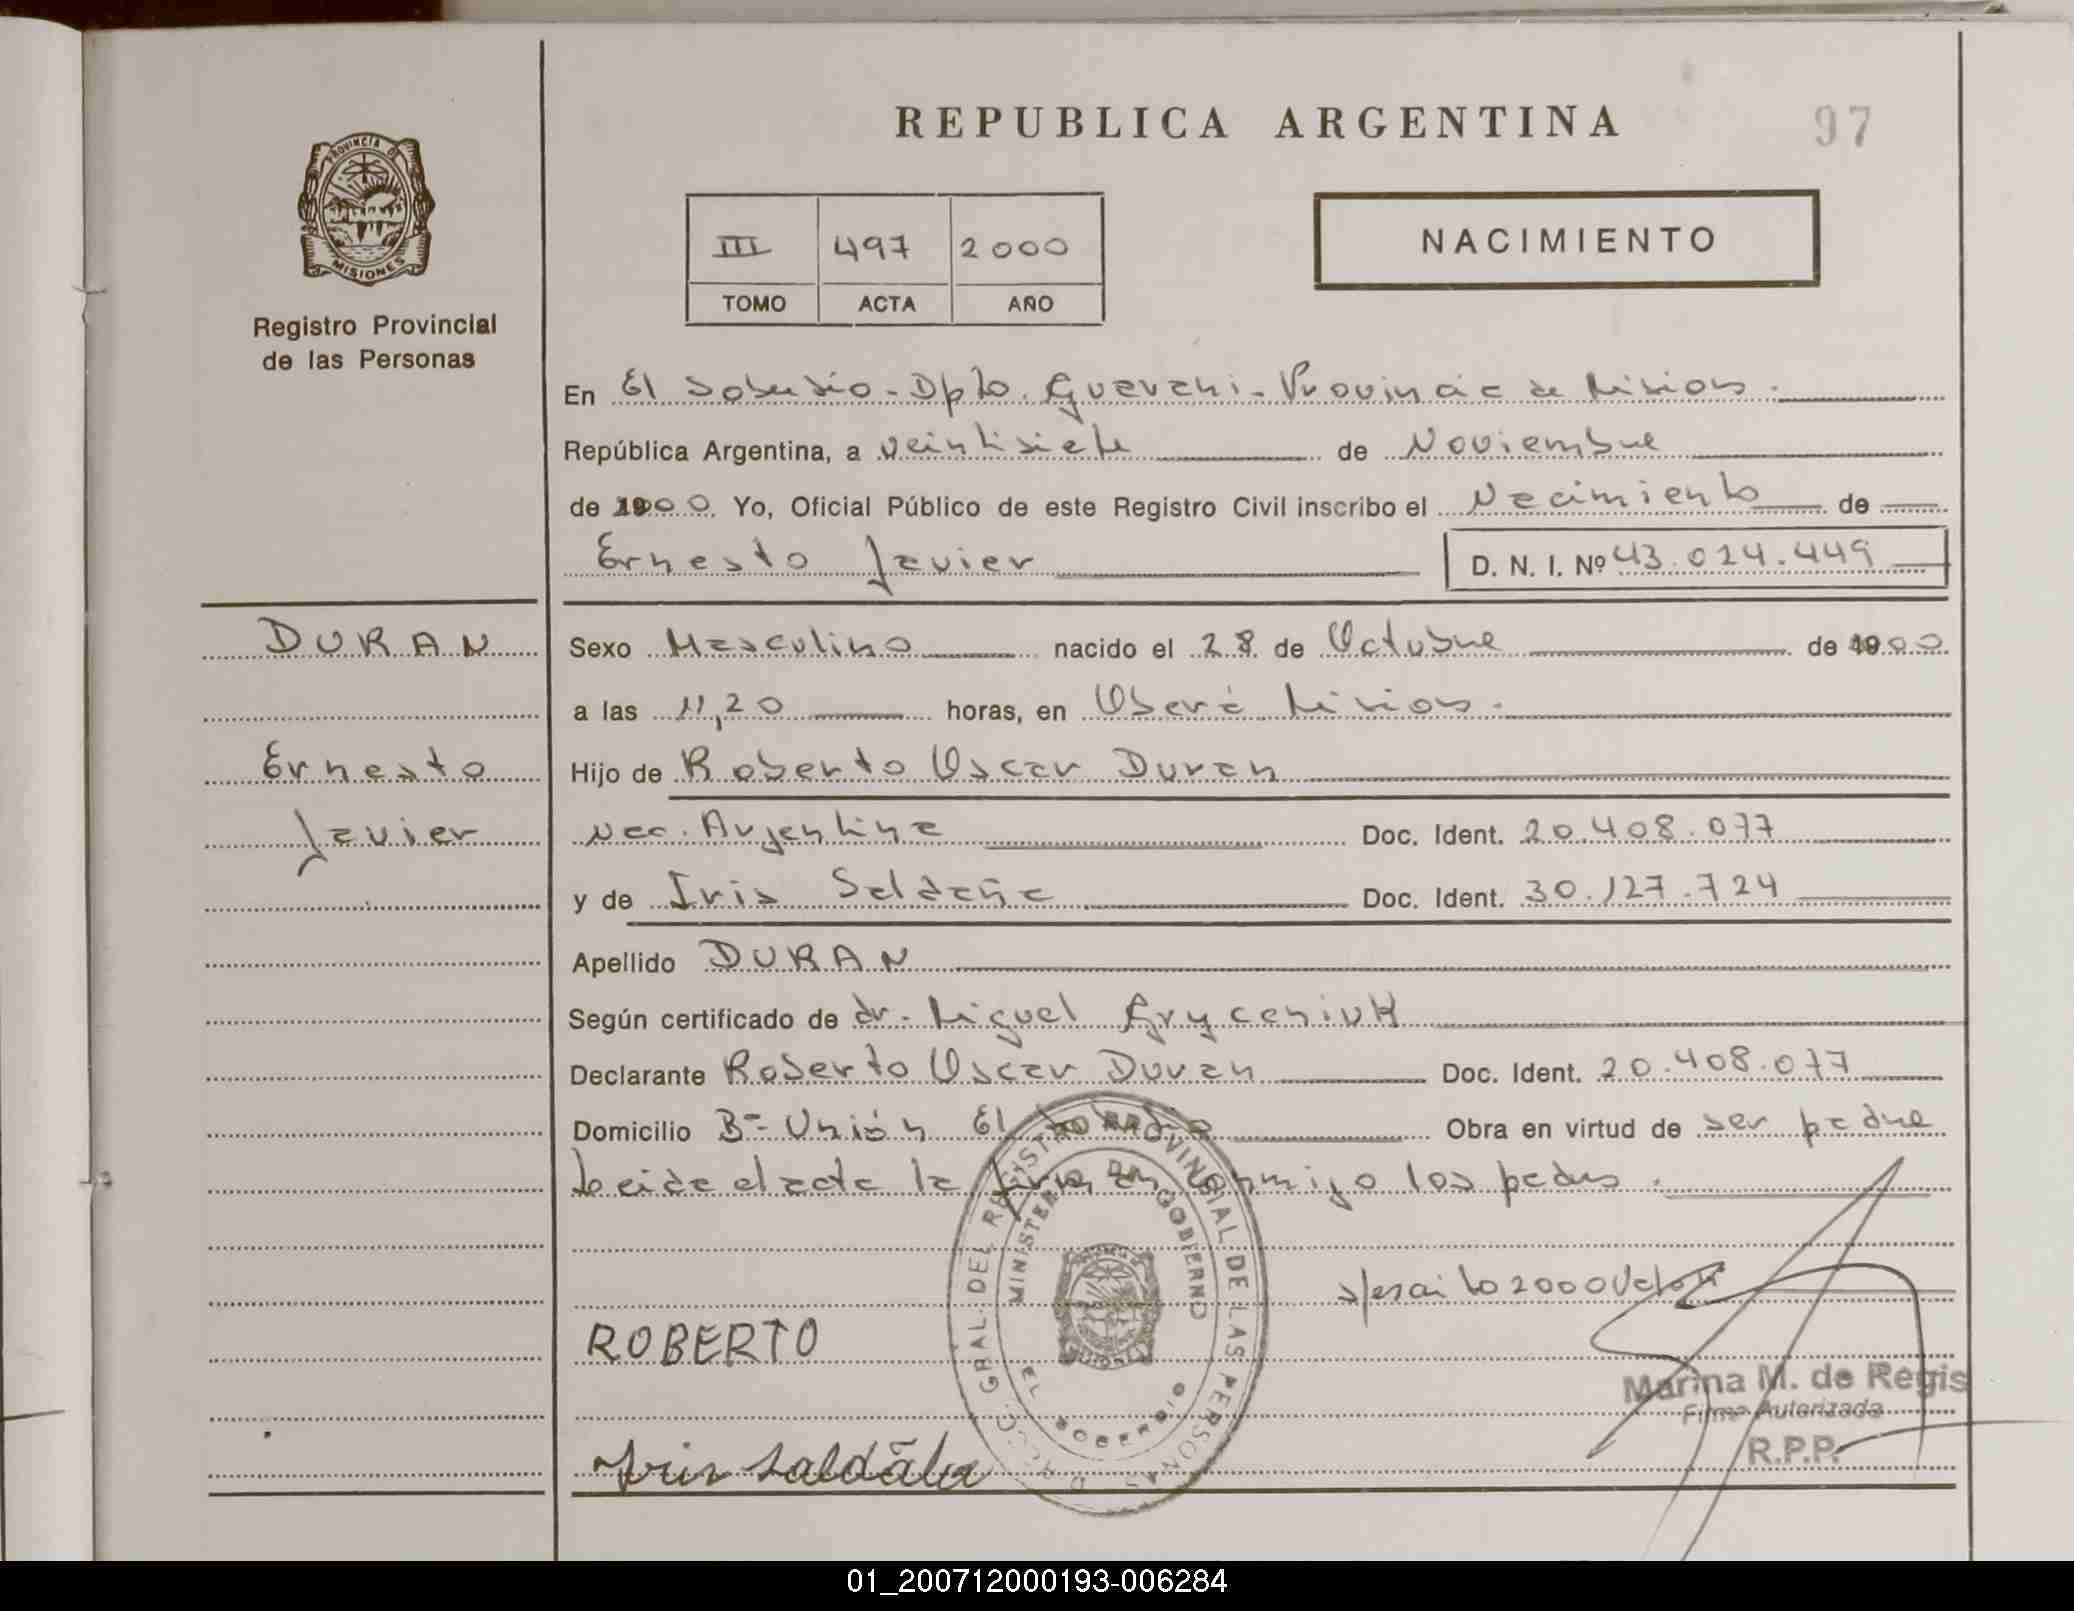 REPUBLICA ARGENTINA
97
PROVINCIA DE
MISIONES
Registro Provincial
de las Personas
III 497 2000
TOMO ACTA AÑO
NACIMIENTO
En El Soberbio - Dpto. Guarani - Provincia de Misiones.
República Argentina, a veintisiete de Noviembre
de 2000 Yo, Oficial Público de este Registro Civil inscribo el Nacimiento de
Ernesto Javier D. N. I. Nº 43.024.449
DURAN
Ernesto
Javier
Sexo Masculino nacido el 28 de Octubre de 2000
a las 11,20 horas, en Oberá Misiones.
Hijo de Roberto Oscar Duran
Nac. Argentina Doc. Ident. 20.408.077
y de Iris Saldaña Doc. Ident. 30.127.724
Apellido DURAN
Según certificado de dr. Miguel Gryceniuk
Declarante Roberto Oscar Duran Doc. Ident. 20.408.077
Domicilio Bº Unión El Soberbio Obra en virtud de ser padre
Leida el acta la firman conmigo los padres.
2000 Vale
ROBERTO
Iris Saldãña
GRAL. DEL REGISTRO PROVINCIAL DE LAS PERSONAS
MINISTERIO DE GOBIERNO
EL SOBERBIO
Marina M. de Regis
Firma Autorizada
R.P.P.
01_200712000193-006284